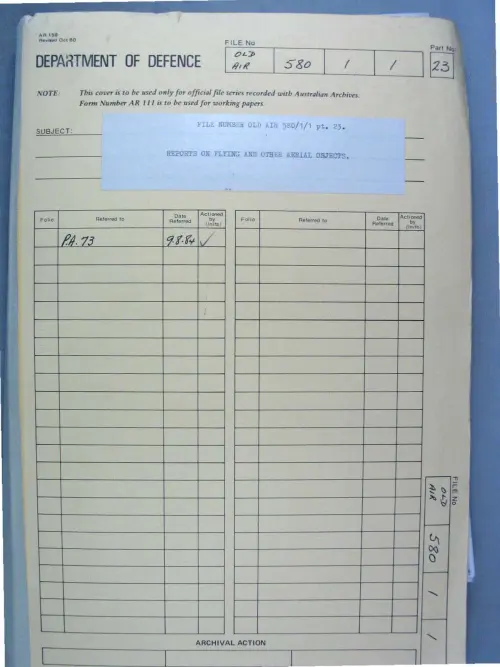 AR 159
Revised Oct 80
FILE No
Part No
DEPARTMENT OF DEFENCE
OLD
AIR
580
/
/
23
NOTE: This cover is to be used only for official file series recorded with Australian Archives.
Form Number AR 111 is to be used for working papers.
SUBJECT:
FILE NUMBER OLD AIR 580/1/1 pt. 23.
REPORTS ON FLYING AND OTHER AERIAL OBJECTS.
Folio Referred to Date Referred Actioned by (Units) Folio Referred to Date Referred Actioned by (Units)
P.A. 73 9.8.84 ✓
FILE No
OLD
AIR
580
/
/
ARCHIVAL ACTION